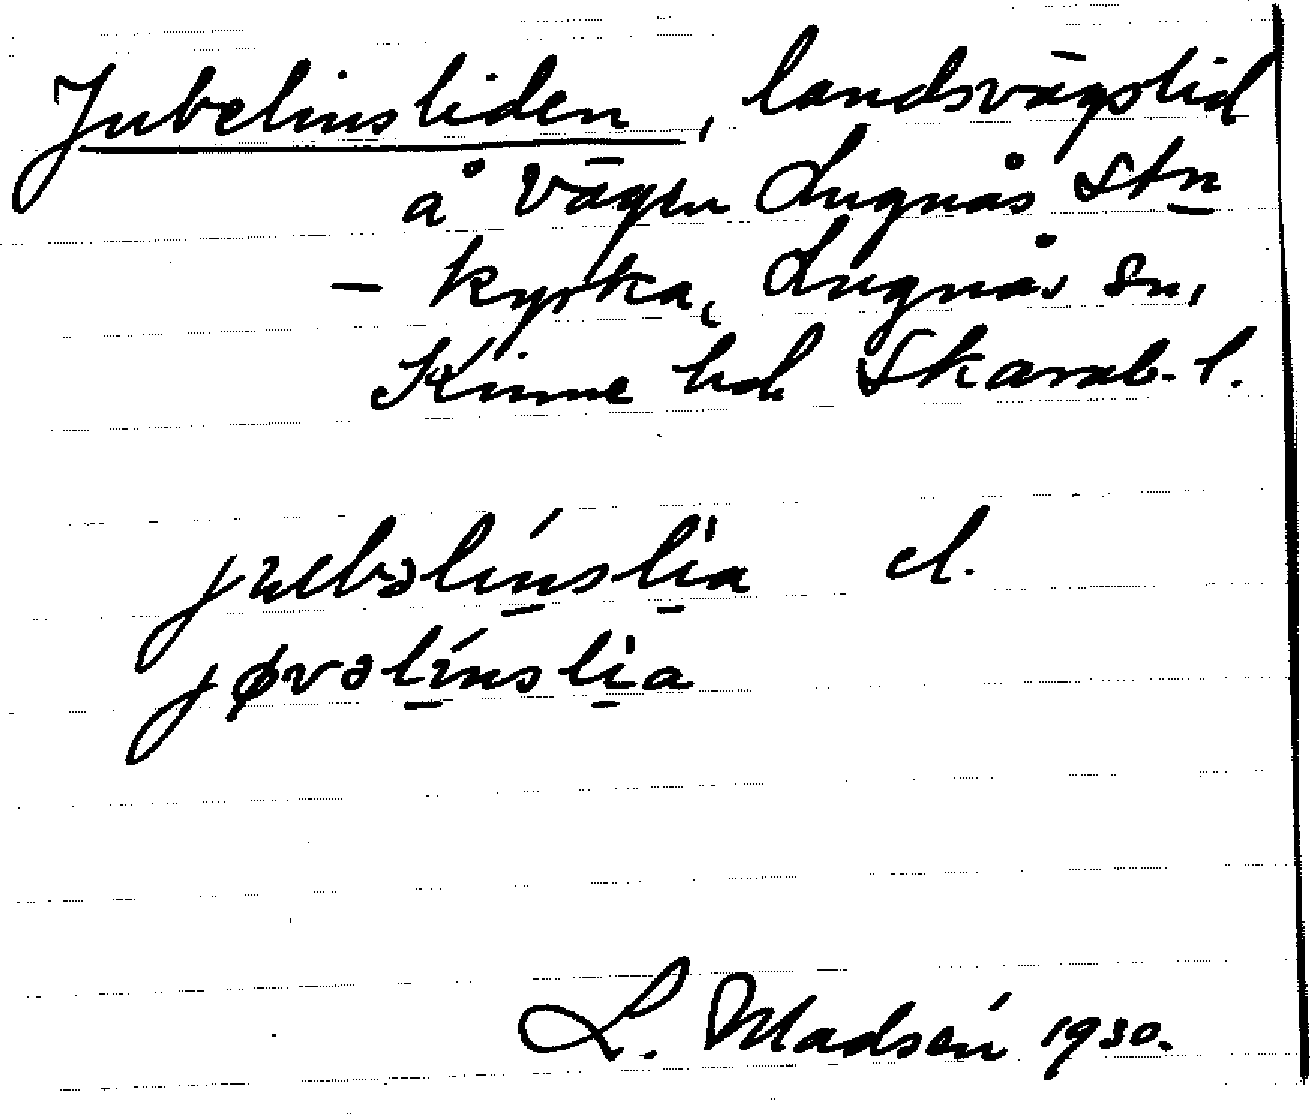 Jubelinsliden, landsvägslid
å vägen Lugnås Stn
- kyrka, Lugnås sn,
Kinne hd Skarab. l.
jubəlínslia el.
jøvəlínslia
L. Madsén 1930.